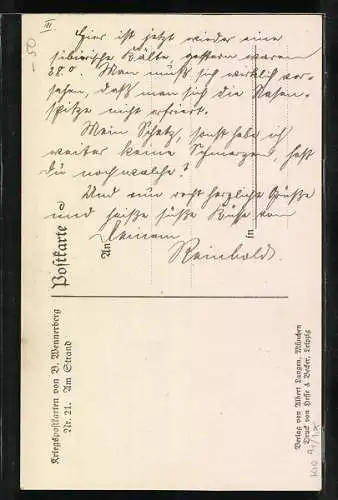 III
Hier ist jetzt wieder eine
sibirische Kälte, gestern waren
28.0. Man muß sich wirklich vor-
sehen, daß man sich die Nasen-
spitze nicht erfriert.
Mein Schatz, sonst habe ich
weiter keine Schmerzen, hast
du noch welche?
Und nun recht herzliche Grüße
und heiße süße Küsse von
Deinem
Reinhold.
Postkarte
An
in
Kriegspostkarten von B. Wennerberg
Nr. 21. Am Strand
Verlag von Albert Langen, München
Druck von Hesse & Becker, Leipzig
-50